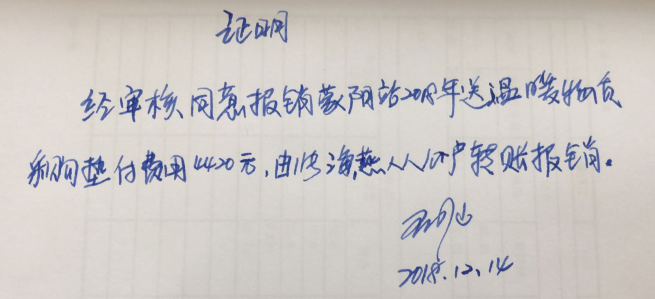 证明
经审核同意报销蒙阳站2018年送温暖物资
采购垫付费用4420元,由张海燕个人账户转账报销。
2018.12.14